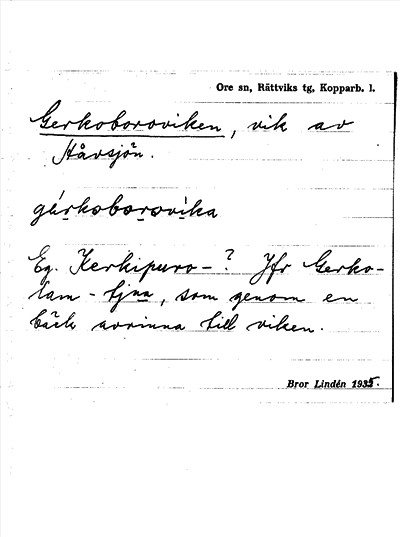 Ore sn, Rättviks tg, Kopparb. l.
Gerkoboroviken, vik av
Håvsjön.
gèrkoborovika
Eg. Kerkipuro-? Jfr Gerko-
lam-tjnn, som genom en
bäck avrinna till viken.
Bror Lindén 1935.